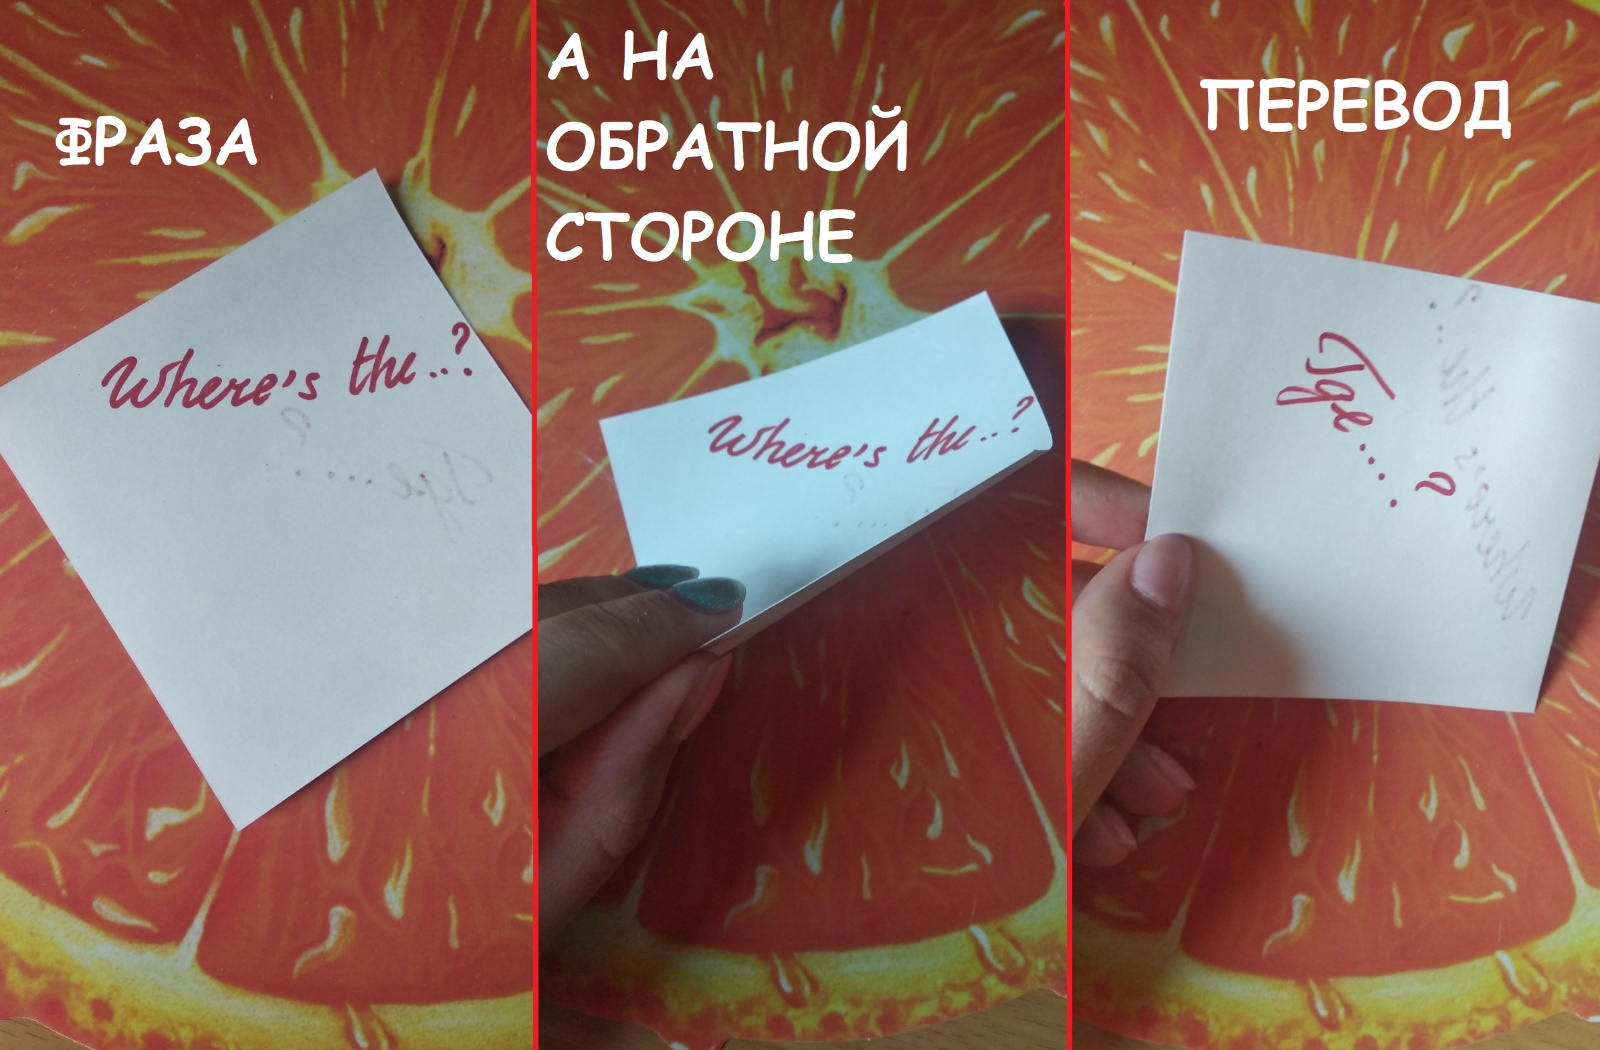 ФРАЗА
Where's the..?
А НА
ОБРАТНОЙ
СТОРОНЕ
Where's the...?
ПЕРЕВОД
Где.... ?